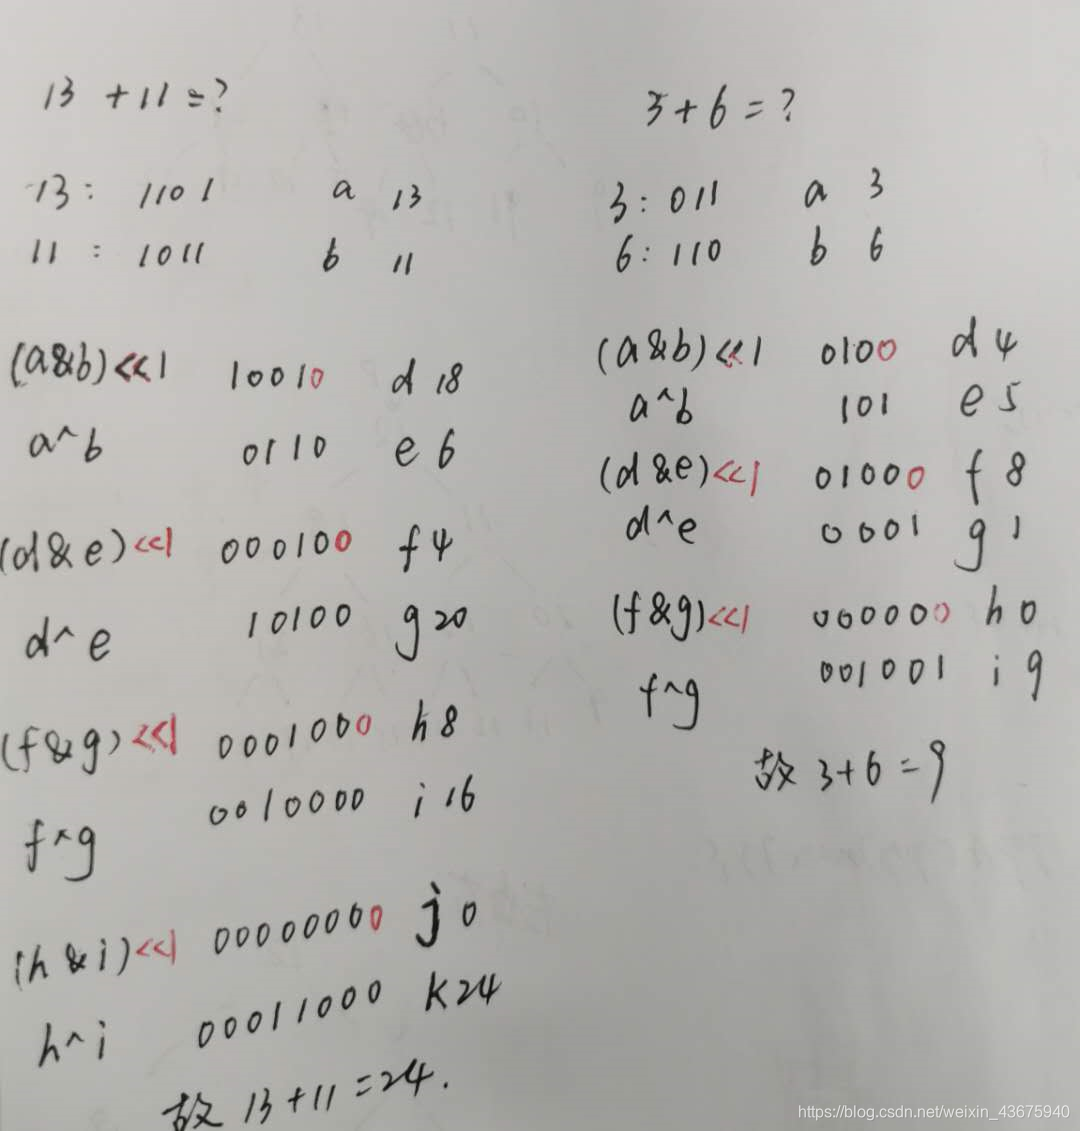 13 + 11 = ?
13: 1101 a 13
11 : 1011 b 11
(a&b)<<1 10010 d 18
a^b 0110 e 6
(d&e)<<1 000100 f 4
d^e 10100 g 20
(f&g)<<1 0001000 h 8
f^g 0010000 i 16
(h&i)<<1 00000000 j 0
h^i 00011000 k 24
故 13+11=24.
3+6=?
3: 011 a 3
6: 110 b 6
(a&b)<<1 0100 d 4
a^b 101 e 5
(d&e)<<1 01000 f 8
d^e 0001 g 1
(f&g)<<1 000000 h 0
f^g 001001 i 9
故 3+6=9
https://blog.csdn.net/weixin_43675940